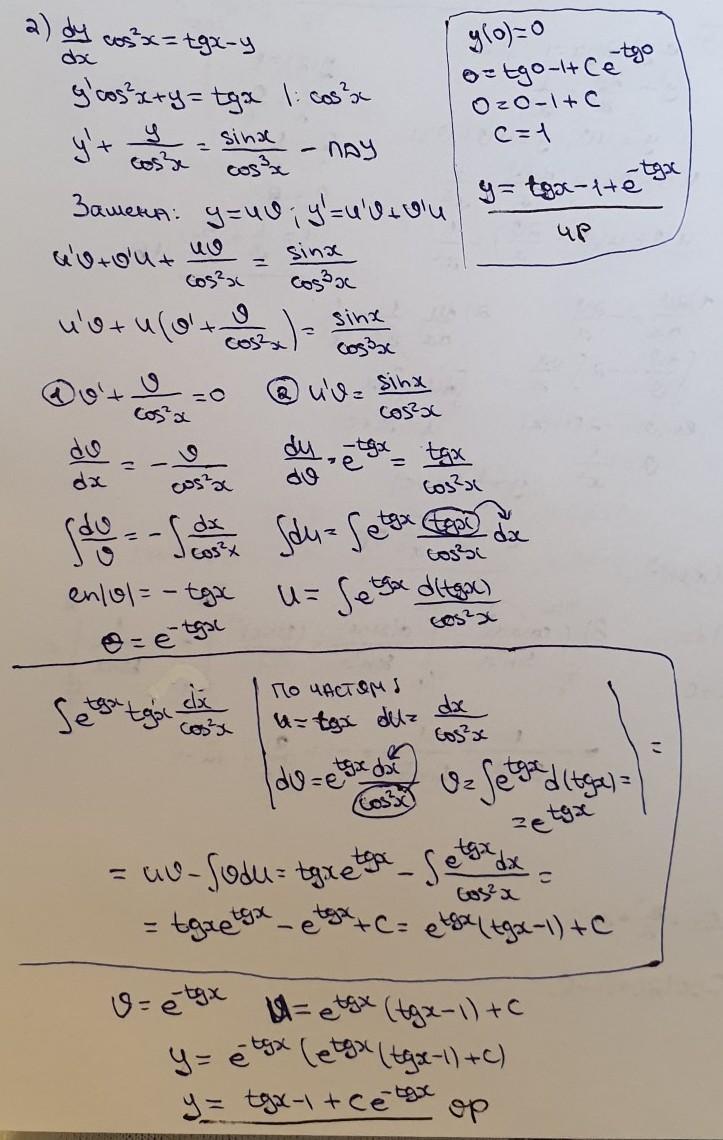 2) dy/dx cos²x = tgx - y
y'cos²x + y = tgx |: cos²x
y' + y/cos²x = sinx/cos³x - ЛДУ
Замена: y = uv ; y' = u'v + v'u
u'v + v'u + uv/cos²x = sinx/cos³x
u'v + u(v' + v/cos²x) = sinx/cos³x
① v' + v/cos²x = 0
dv/dx = - v/cos²x
∫dv/v = -∫dx/cos²x
ln|v| = -tgx
v = e^(-tgx)
② u'v = sinx/cos²x
du/dv · e^(-tgx) = tgx/cos²x
∫du = ∫e^(tgx) tgx/cos²x dx
u = ∫e^(tgx) d(tgx)/cos²x
y(0)=0
0 = tg0 - 1 + Ce^(-tg0)
0 = 0 - 1 + C
C = 1
y = tgx - 1 + e^(-tgx)
чр
∫e^(tgx) tgx dx/cos²x
по частям:
u = tgx du = dx/cos²x
dv = e^(tgx) dx/cos²x v = ∫e^(tgx) d(tgx) =
= e^(tgx)
=
= uv - ∫vdu = tgx e^(tgx) - ∫ e^(tgx)dx/cos²x =
= tgx e^(tgx) - e^(tgx) + C = e^(tgx)(tgx-1) + C
v = e^(-tgx) u = e^(tgx)(tgx-1) + C
y = e^(-tgx)(e^(tgx)(tgx-1) + C)
y = tgx - 1 + Ce^(-tgx) ор